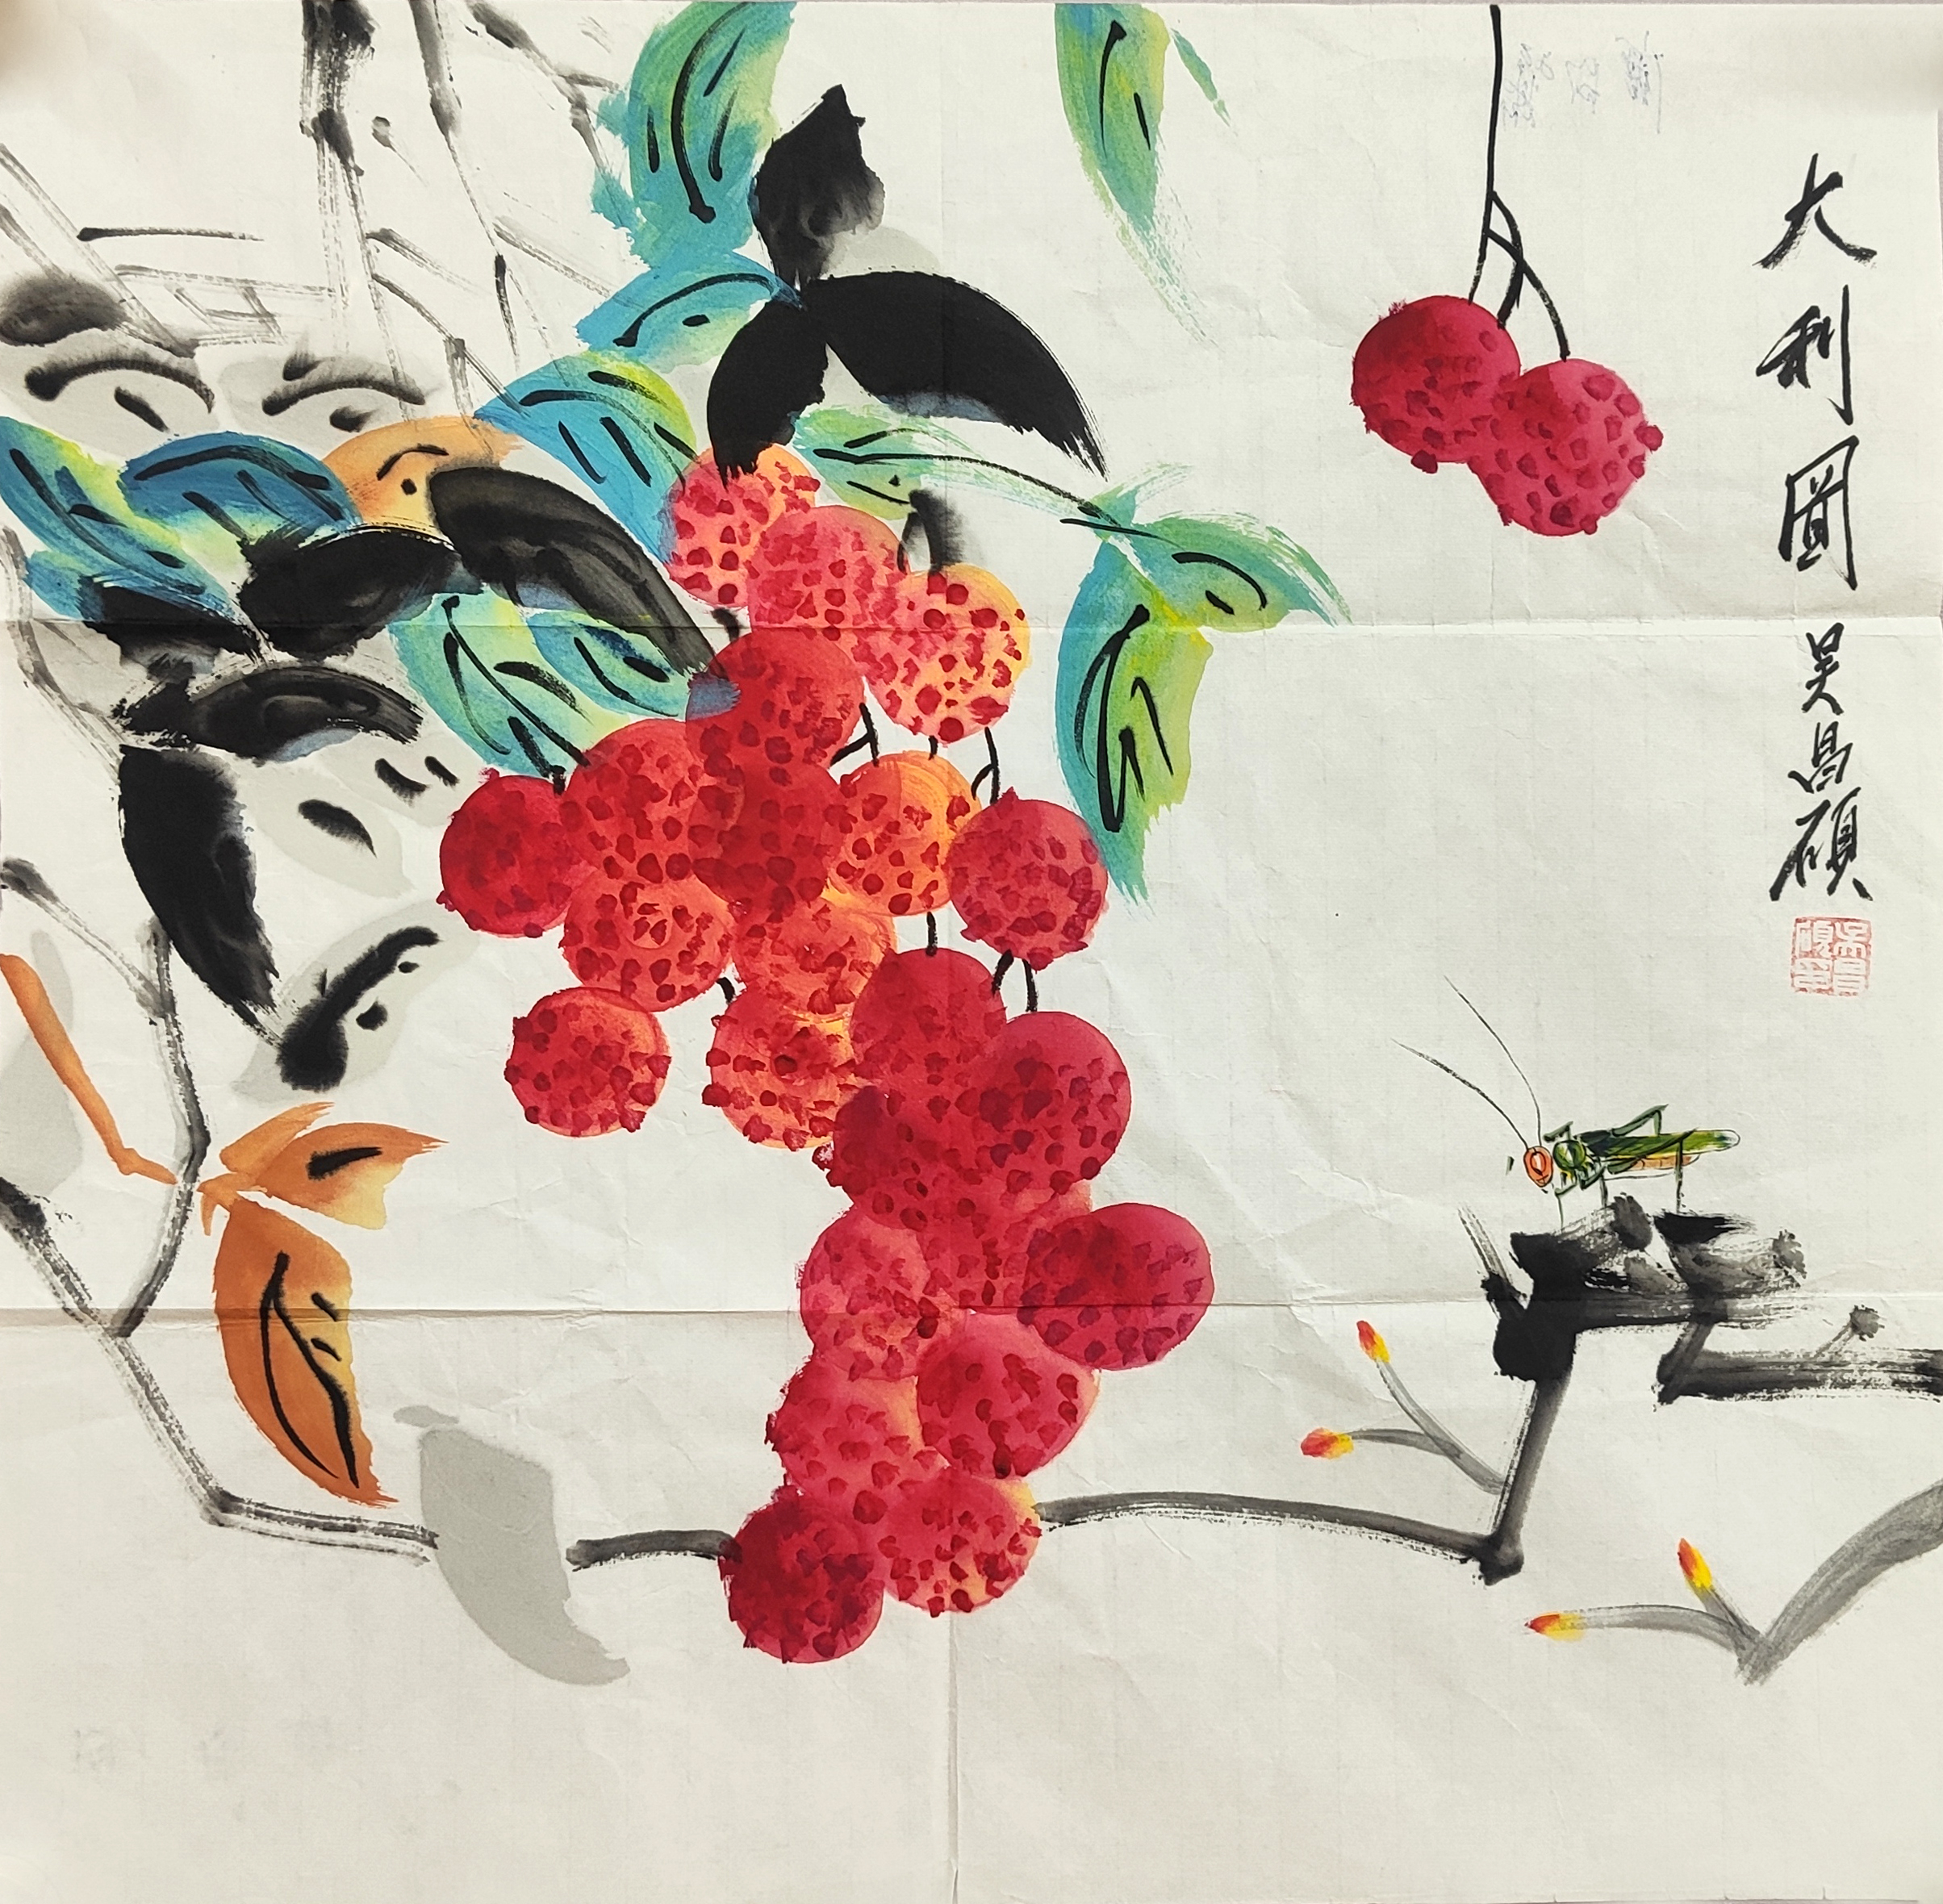 大利圖
吴昌碩
吴昌碩印